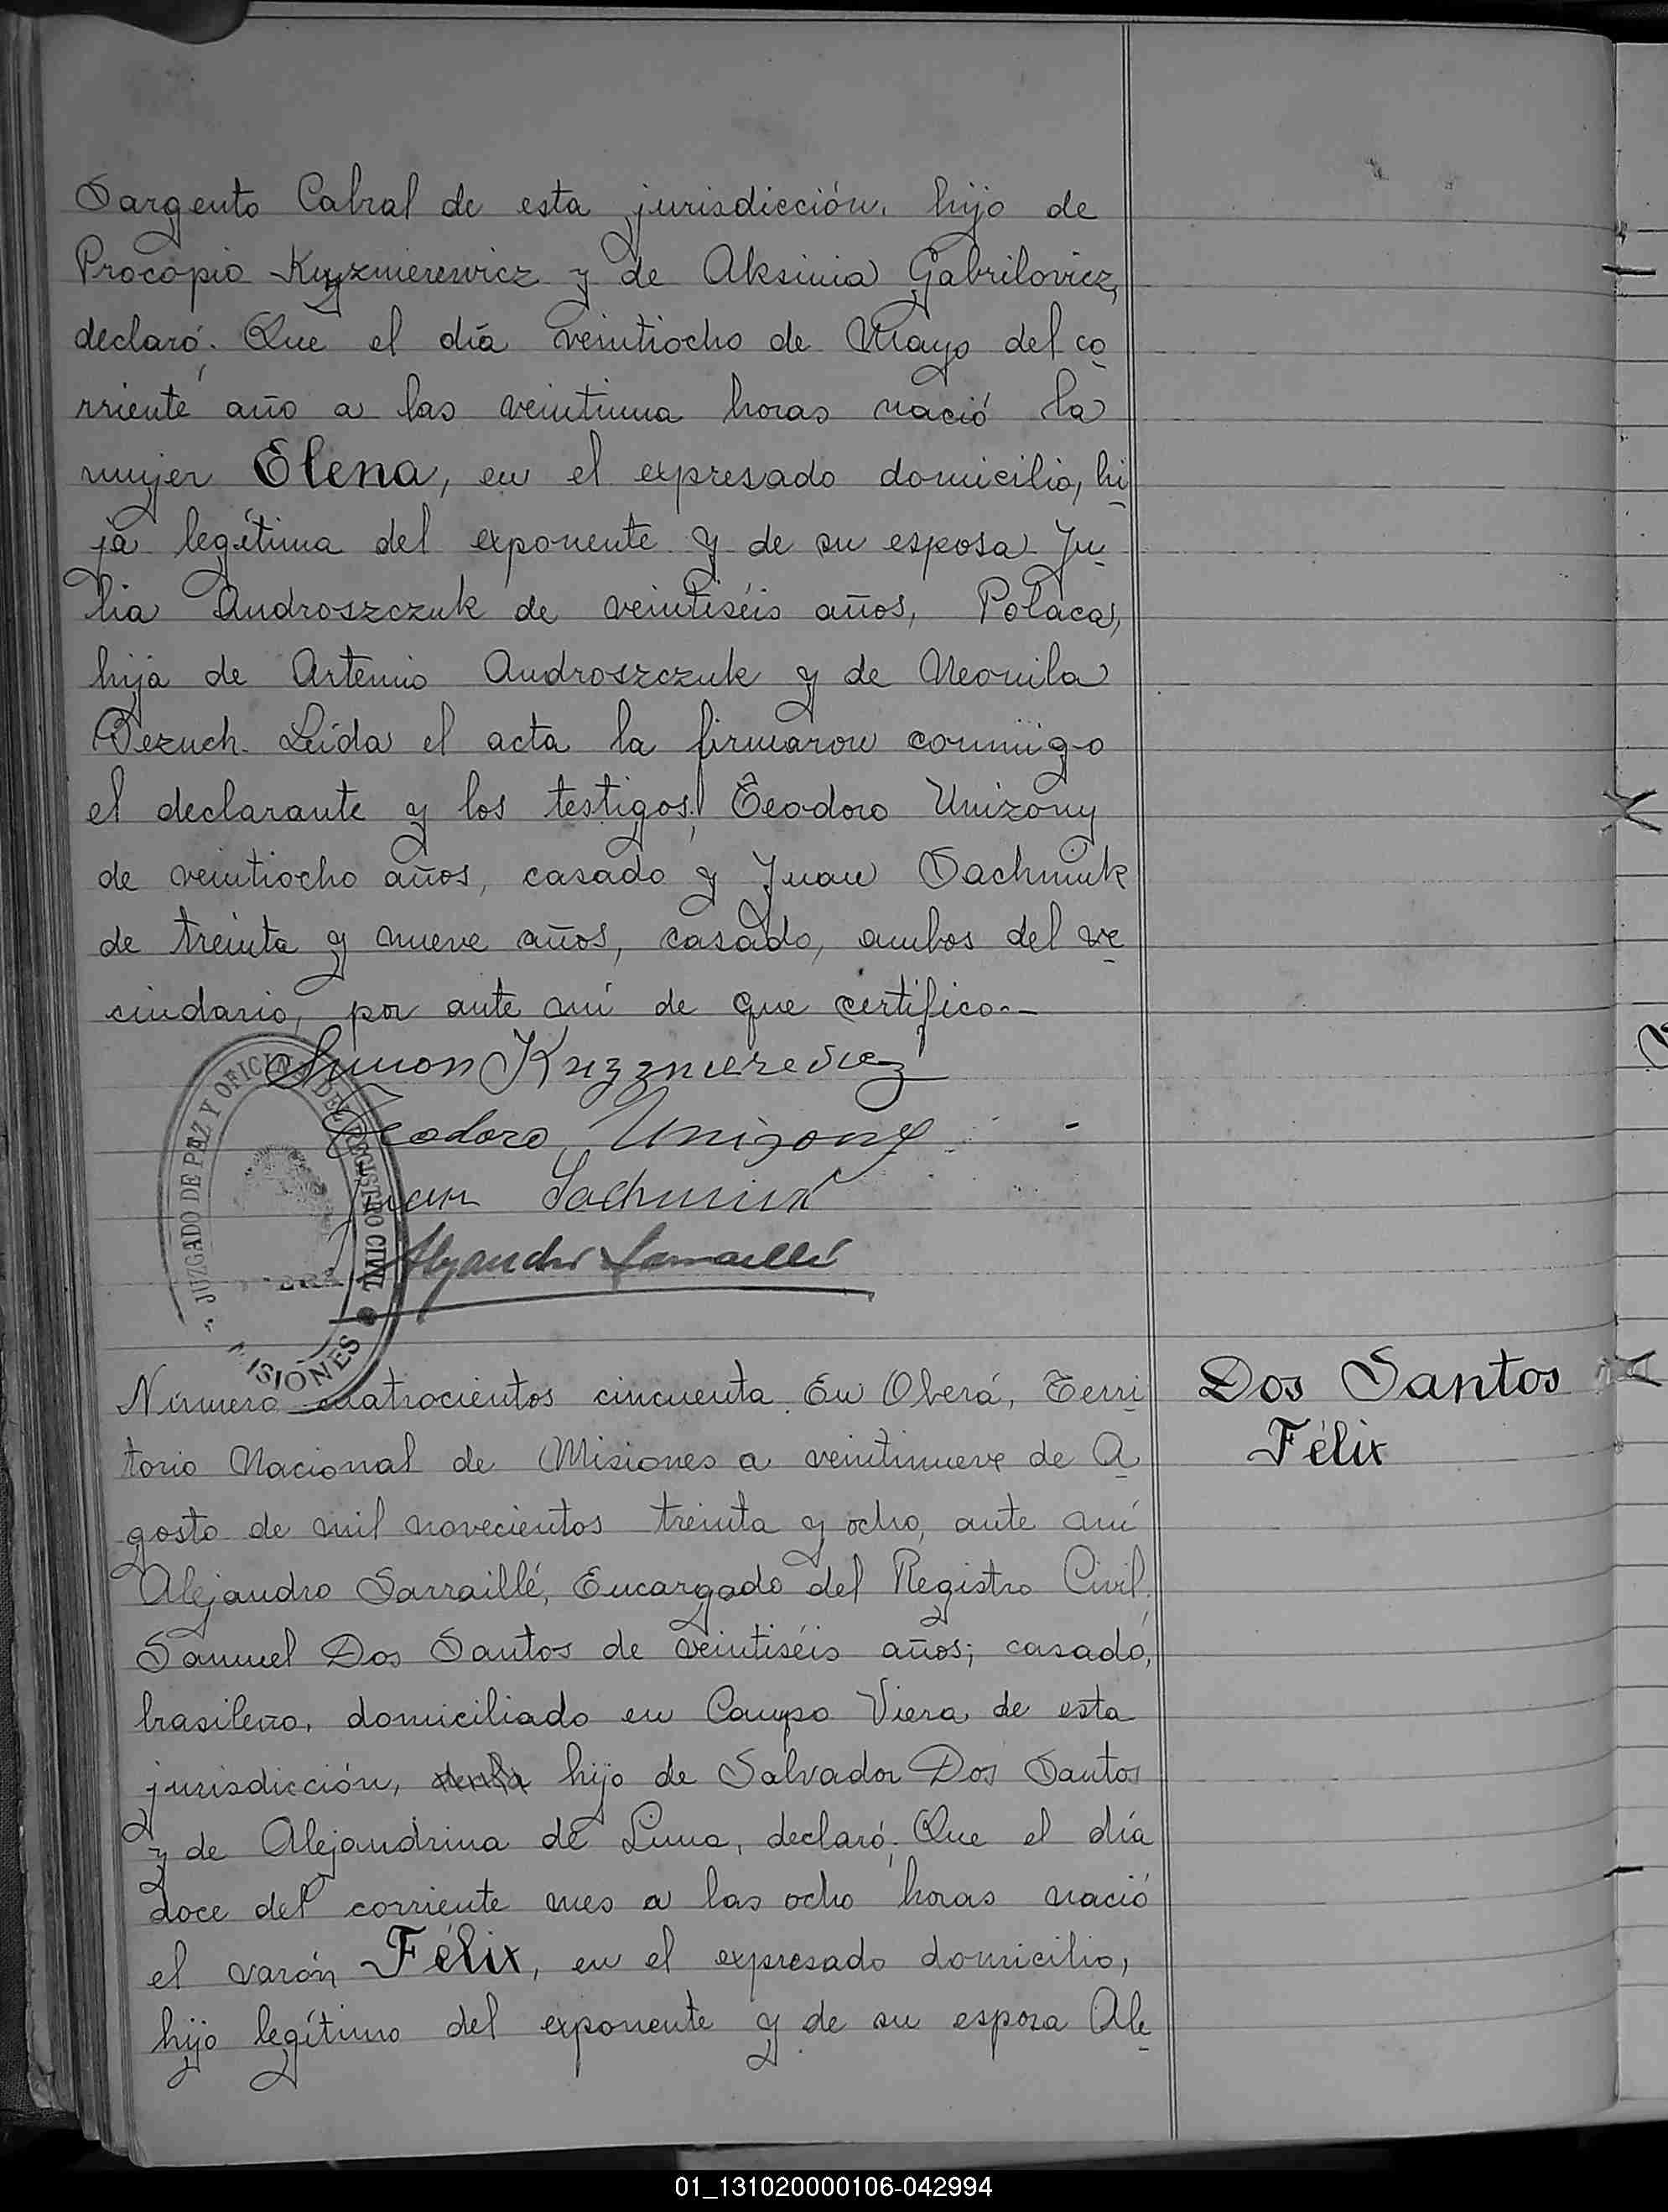 Sargento Cabral de esta jurisdicción, hijo de
Procopio Kuzmierewicz y de Aksinia Gabrilovicz,
declaró: Que el día veintiocho de Mayo del co
rriente año a las veintiuna horas nació la
mujer Elena, en el expresado domicilio, hi
ja legítima del exponente y de su esposa Ju
lia Androszczuk de veintiséis años, Polaca,
hija de Artemio Androszczuk y de Neonila
Bezuch. Leída el acta la firmaron conmigo
el declarante y los testigos; Teodoro Unizony
de veintiocho años, casado y Juan Sachniuk
de treinta y nueve años, casado, ambos del ve
cindario, por ante mí de que certifico.-
Simon Kuzzmierewiez
Teodoro Unizony
Juan Sachniuk
Alejandro Sarraillé
JUZGADO DE PAZ Y OFICINA DEL REGISTRO CIVIL
MISIONES
Número cuatrocientos cincuenta. En Oberá, Terri
torio Nacional de Misiones a veintinueve de A
gosto de mil novecientos treinta y ocho, ante mí
Alejandro Sarraillé, Encargado del Registro Civil.
Samuel Dos Santos de veintiséis años; casado,
brasilero, domiciliado en Campo Viera de esta
jurisdicción, hijo de Salvador Dos Santos
y de Alejandrina de Lima, declaró: Que el día
doce del corriente mes a las ocho horas nació
el varón Félix, en el expresado domicilio,
hijo legítimo del exponente y de su esposa Ale
Dos Santos
Félix
01_131020000106-042994